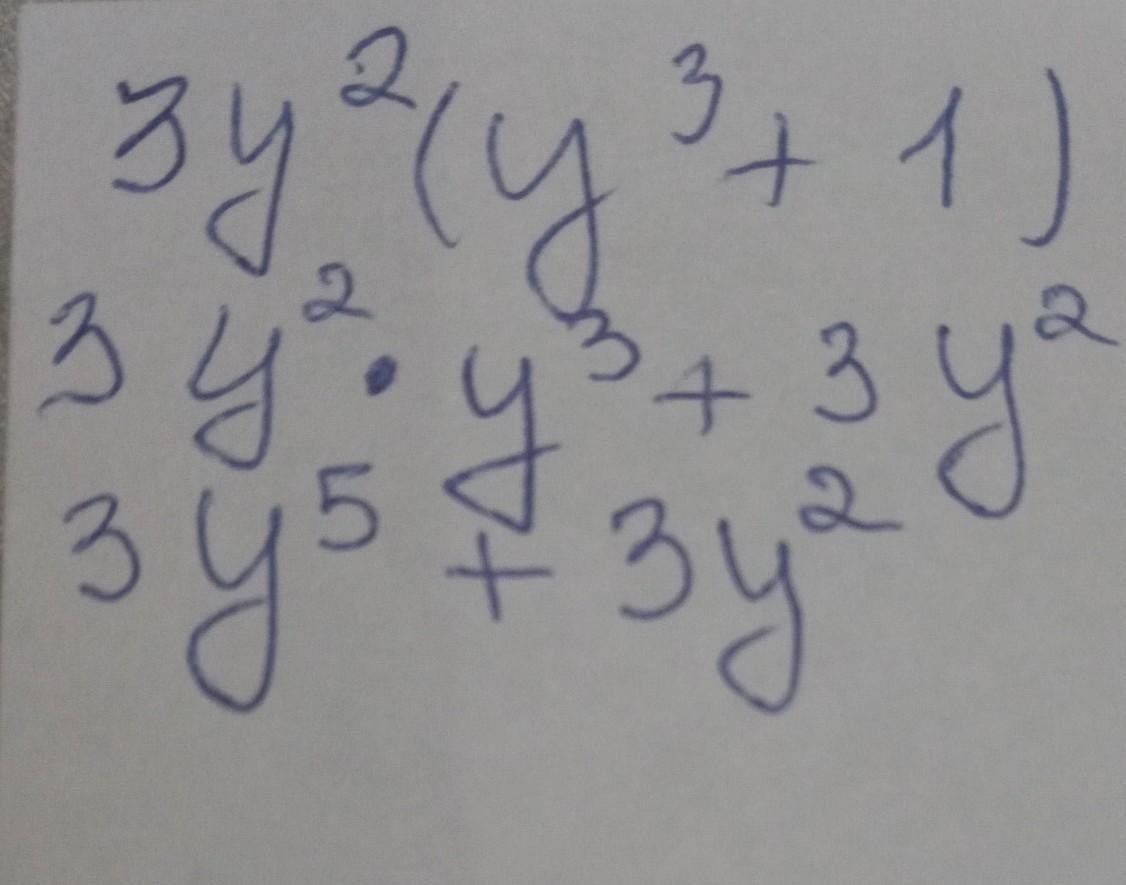 3y²(y³+1)
3y²·y³+3y²
3y⁵+3y²